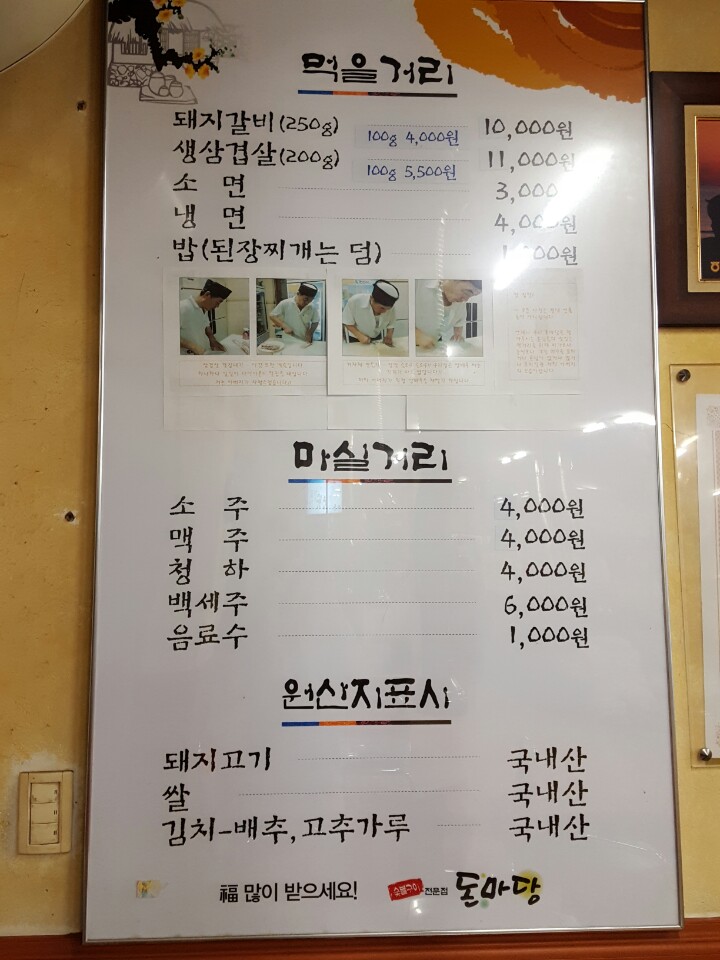 먹을거리
돼지갈비(250g) 100g 4,000원 10,000원
생삼겹살(200g) 100g 5,500원 11,000원
소 면 3,000
냉 면 4,000원
밥(된장찌개는 덤) 1,000원
마실거리
소 주 4,000원
맥 주 4,000원
청 하 4,000원
백세주 6,000원
음료수 1,000원
원산지표시
돼지고기 국내산
쌀 국내산
김치-배추,고추가루 국내산
福 많이 받으세요! 숯불구이 전문점 돈마당